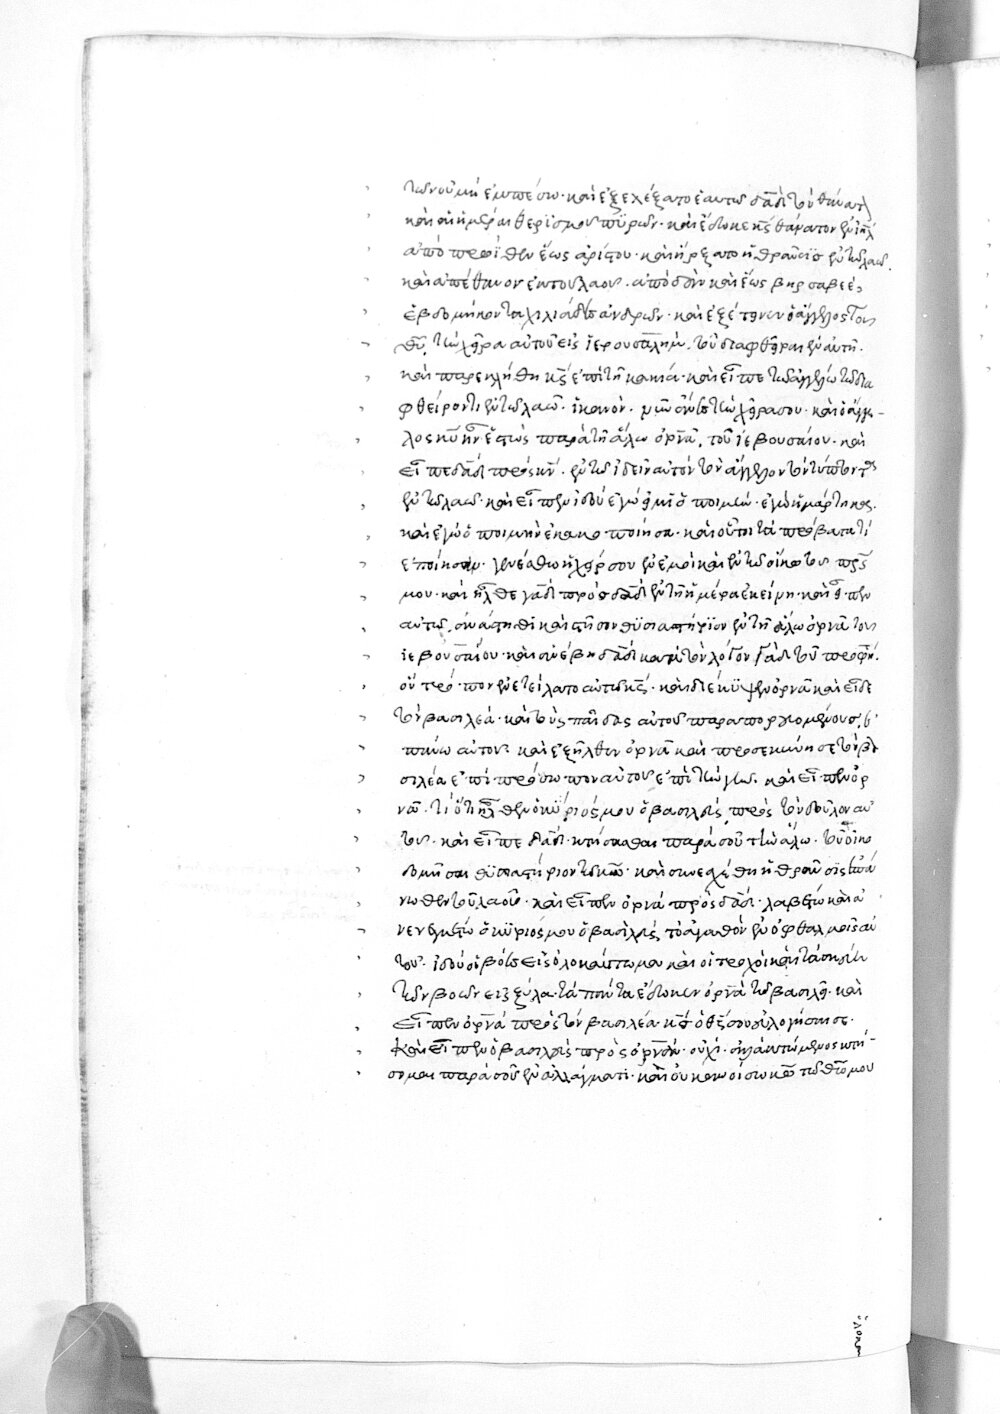 των οὐ μὴ ἐμπέσω· καὶ ἐξελέξατο ἑαυτῶ δᾱδ τὸν θάνατ
καὶ αἱ ἡμέραι θερισμοῦ πυρῶν· καὶ ἔδωκε κ̅ς θάνατον ἐν ιη̅λ
ἀπὸ πρωΐθεν ἕως ἀρίστου· καὶ ἤρξατο ἡ θραῦσις ἐν τῶ λαῶ.
καὶ ἀπέθανον ἐκ τοῦ λαοῦ. ἀπὸ δὰν καὶ ἕως βηρσαβεέ,
ἑβδομήκοντα χιλιάδες ἀνδρῶν· καὶ ἐξέτεινεν ὁ ἄγγελος τοῦ
θ̅υ, τὴν χεῖρα αὐτοῦ εἰς ἱερουσαλὴμ, τοῦ διαφθεῖραι ἐν αὐτῆ.
καὶ παρεκλήθη κ̅ς ἐπὶ τῆ κακία· καὶ εἶπε τῶ ἀγγέλω τῶ δια
φθείροντι ἐν τῶ λαῶ. ἱκανὸν. νῦν ἄνες τὴν χεῖρα σου· καὶ ὁ ἄγγε-
λος κ̅υ ἦν ἑστὼς παρὰ τῆ ἅλω ὀρνᾶ, τοῦ ἰεβουσαίου· καὶ
εἶπε δᾱδ πρὸς κ̅ν. ἐν τῶ ἰδεῖν αὐτὸν τὸν ἄγγελον τὸν τύπτοντα
ἐν τῶ λαῶ· καὶ εἶπεν ἰδοὺ ἐγώ εἰμι ὁ ποιμὴν· ἐγὼ ἡμάρτηκα.
καὶ ἐγὼ ὁ ποιμὴν ἐκακοποίησα· καὶ οὗτοι τὰ πρόβατα τί
ἐποίησαν· γενέσθω ἡ χείρ σου ἐν ἐμοὶ καὶ ἐν τῶ οἴκω τοῦ π̅ρ̅ς
μου· καὶ ἦλθε γὰδ πρὸς δᾱδ ἐν τῆ ἡμέρα ἐκείνη· καὶ εἶπεν
αὐτῶ, ἀνάστηθι καὶ στῆσον θυσιαστήριον ἐν τῆ ἅλω ὀρνᾶ τοῦ
ἰεβουσαίου· καὶ ἀνέβη δᾱδ κατὰ τὸν λόγον γὰδ τοῦ προφήτ.
ὃν τρόπον ἐνετείλατο αὐτῶ κ̅ς· καὶ διέκυψεν ὀρνᾶ καὶ εἶδε
τὸν βασιλέα· καὶ τοὺς παῖδας αὐτοῦ παραπορευομένους, ἐ
πάνω αὐτοῦ· καὶ ἐξῆλθεν ὀρνᾶ καὶ προσεκύνησε τὸν βα
σιλέα ἐπὶ πρόσωπον αὐτοῦ ἐπὶ τὴν γῆν. καὶ εἶπεν ὀρ
νᾶ. τί ὅτι ἦλθεν ὁ κύριός μου ὁ βασιλεὺς πρὸς τὸν δοῦλον αὐ
τοῦ· καὶ εἶπε δᾱδ· κτήσασθαι παρὰ σοῦ τὴν ἅλω· τοῦ οἰκο
δομῆσαι θυσιαστήριον τῶ κ̅ω· καὶ συνεχέθη ἡ θραῦσις ἐπά
νωθεν τοῦ λαοῦ· καὶ εἶπεν ὀρνὰ πρὸς δᾱδ· λαβέτω καὶ ἀ
νενεγκέτω ὁ κύριός μου ὁ βασιλεὺς, τὸ ἀγαθὸν ἐν ὀφθαλμοῖς αὐ
τοῦ· ἰδοὺ οἱ βόες εἰς ὁλοκαύτωμα καὶ οἱ τροχοὶ καὶ τὰ σκεύη
τῶν βοῶν εἰς ξύλα· τὰ πάντα ἔδωκεν ὀρνὰ τῶ βασιλεῖ· καὶ
εἶπεν ὀρνὰ πρὸς τὸν βασιλέα· κ̅ς ὁ θ̅ς σου εὐλογήσαι σε·
καὶ εἶπεν ὁ βασιλεὺς πρὸς ὀρνὰν· οὐχί· ἀλλὰ κτώμενος κτή-
σομαι παρὰ σοῦ ἐν ἀλλάγματι· καὶ οὐκ ἀνοίσω κ̅ω τῶ θ̅ω μου